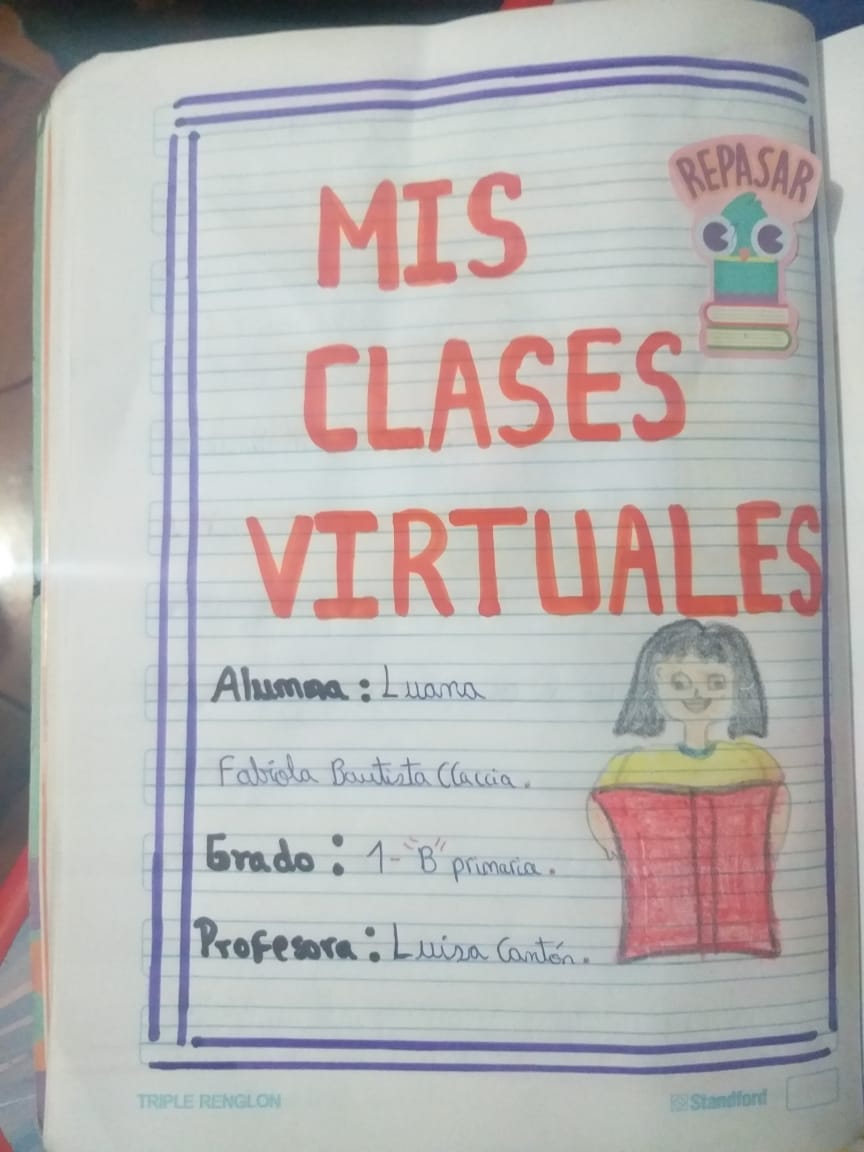 REPASAR
MIS
CLASES
VIRTUALES
Alumna: Luana
Fabiola Bautista Ccaccia.
Grado: 1-"B" primaria.
Profesora: Luisa Cantón.
TRIPLE RENGLON
Standford